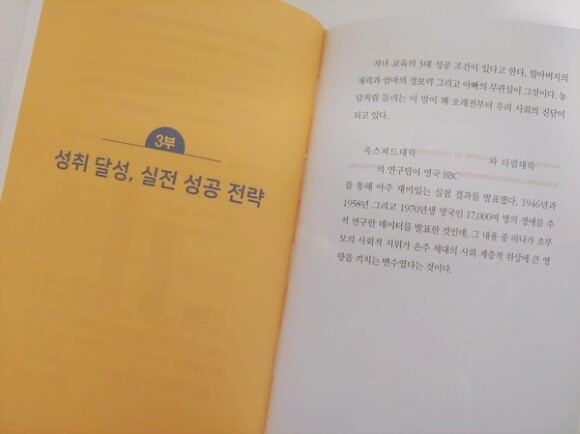 3부
성취 달성, 실전 성공 전략
자녀 교육의 3대 성공 조건이 있다고 한다. 할아버지의
재력과 엄마의 정보력 그리고 아빠의 무관심이 그것이다. 농
담처럼 들리는 이 말이 꽤 오래전부터 우리 사회의 진담이
되고 있다.
옥스퍼드대학 와 더럼대학
의 연구팀이 영국 BBC
를 통해 아주 재미있는 실험 결과를 발표했다. 1946년과
1958년 그리고 1970년생 영국인 17,000여 명의 생애를 추
적 연구한 데이터를 발표한 것인데, 그 내용 중 하나가 조부
모의 사회적 지위가 손주 세대의 사회 계층적 위상에 큰 영
향을 끼치는 변수였다는 것이다.